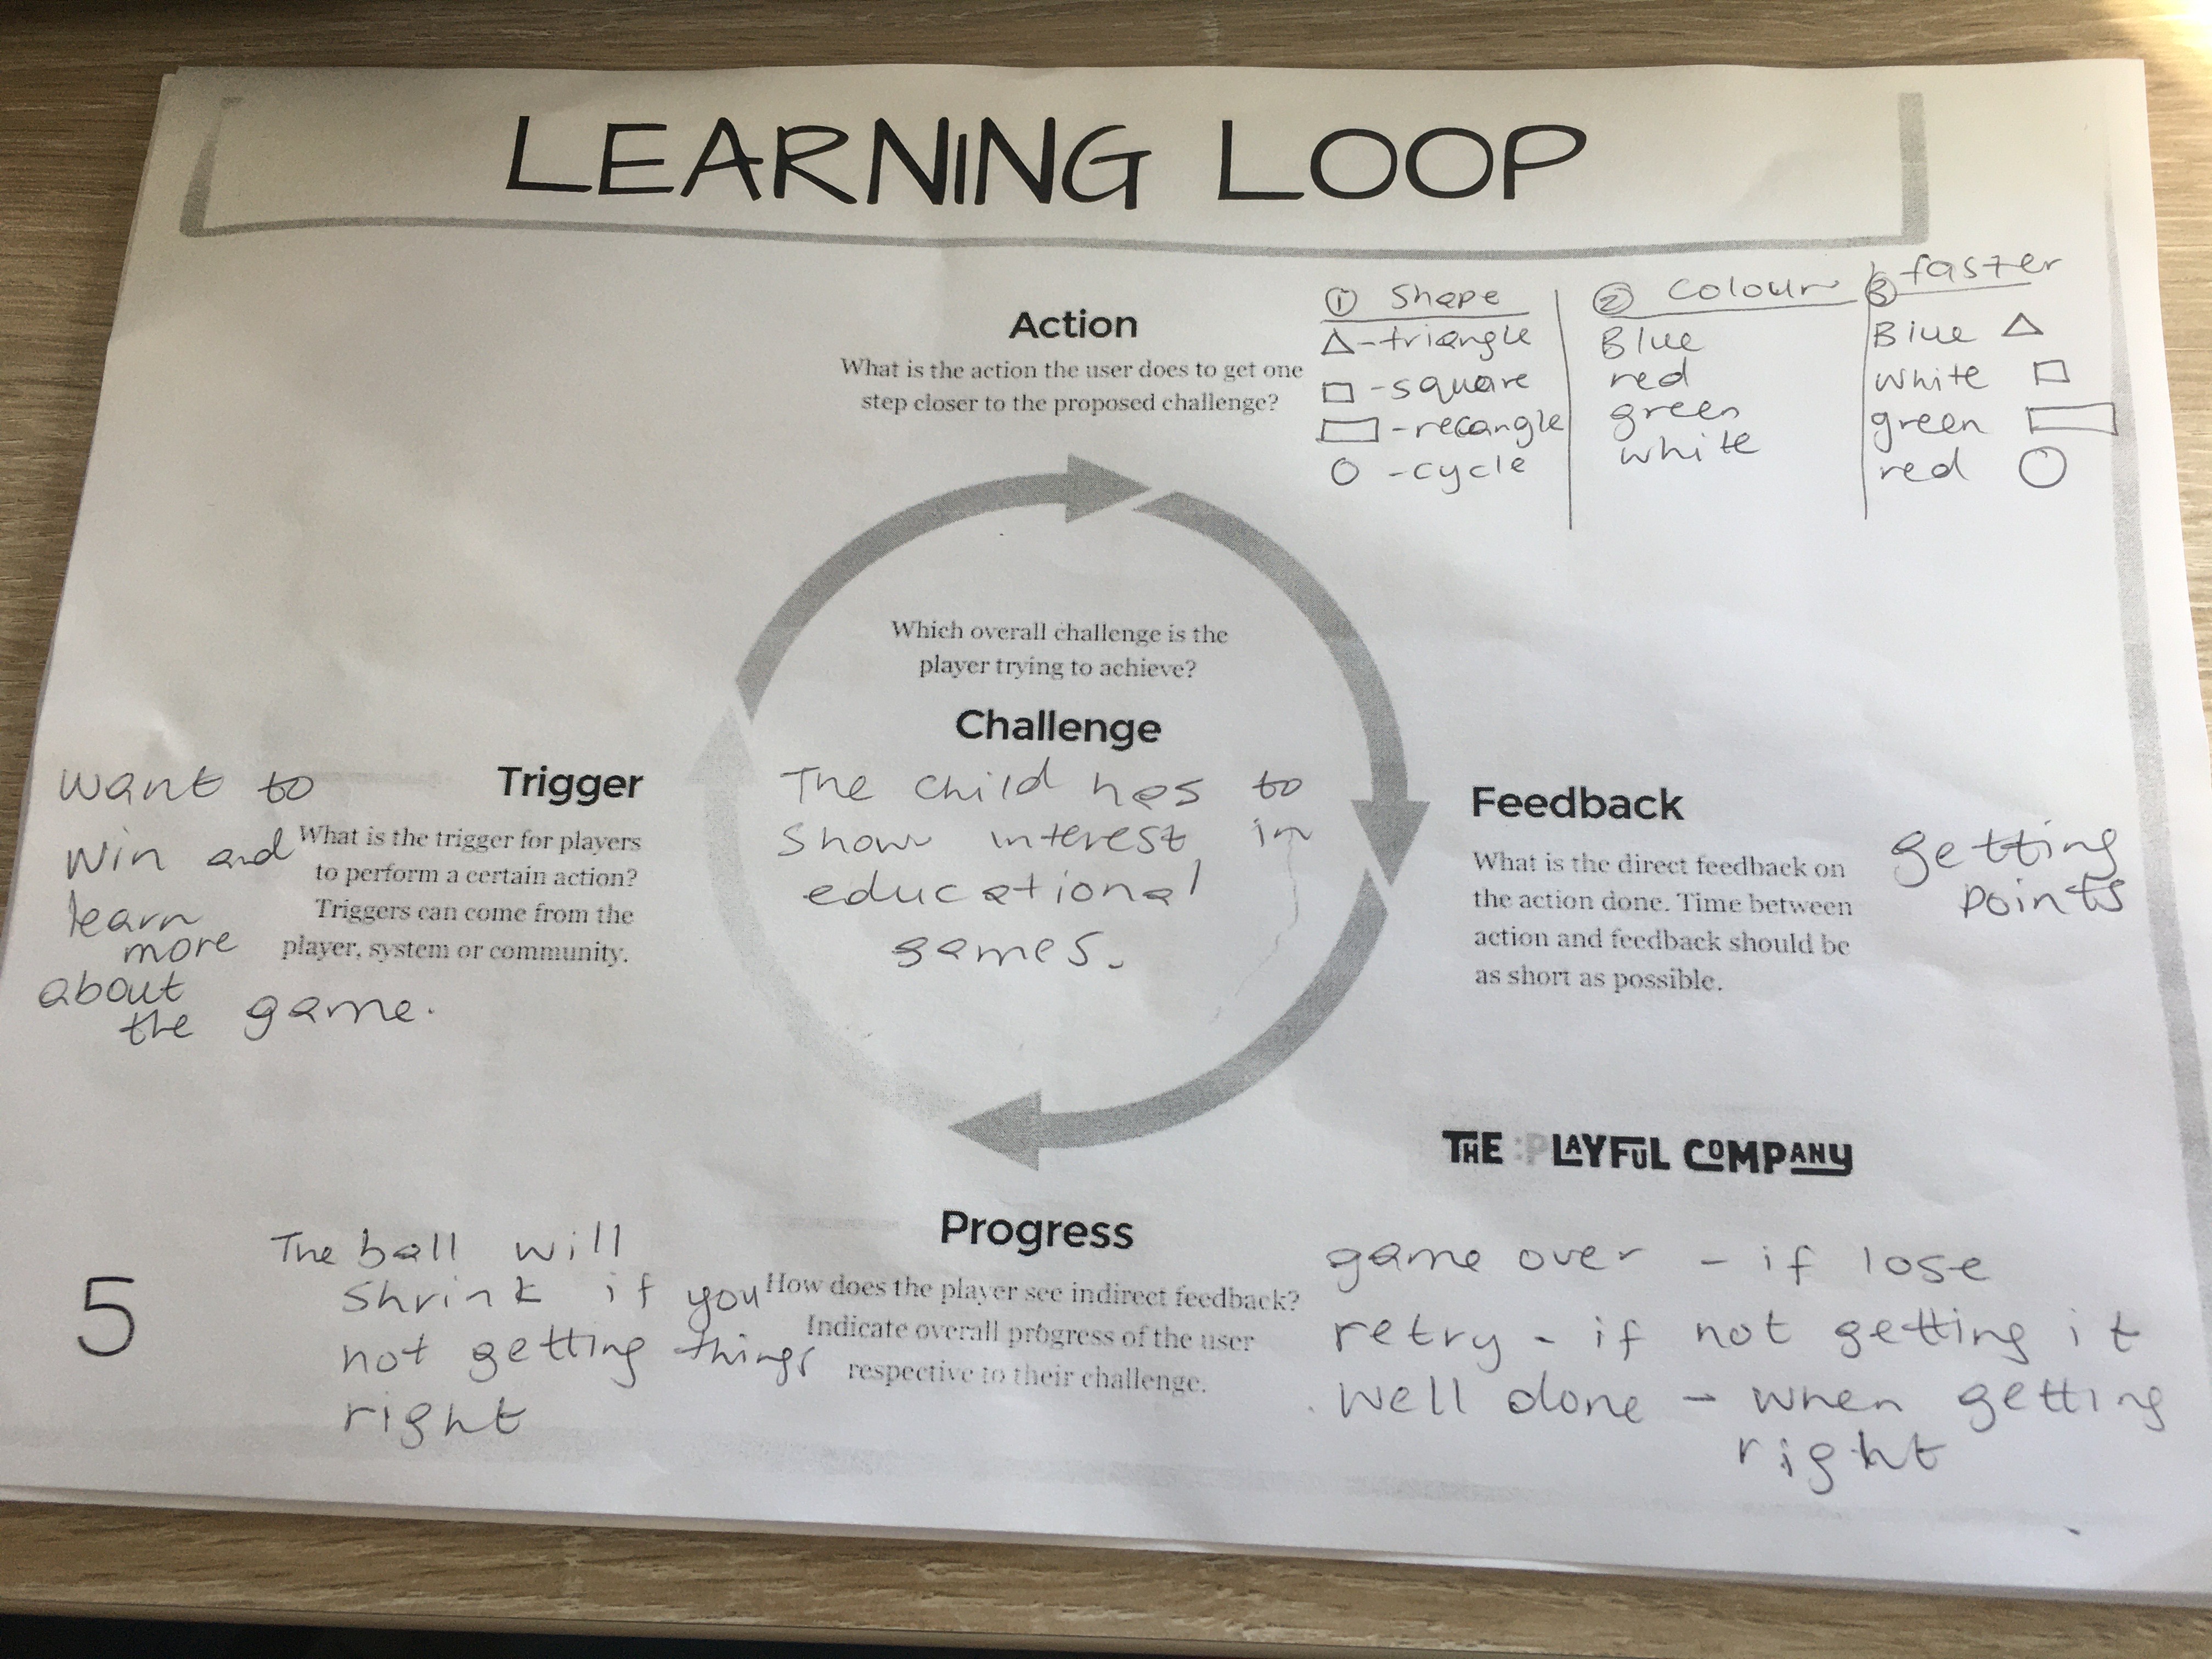 LEARNING LOOP
Action
What is the action the user does to get one
step closer to the proposed challenge?
① shape
△-triangle
□-square
▭-recangle
○-cycle
② colour
Blue
red
green
white
③ faster
Blue △
white □
green ▭
red ○
Trigger
What is the trigger for players
to perform a certain action?
Triggers can come from the
player, system or community.
want to
win and
learn
more
about
the game.
Which overall challenge is the
player trying to achieve?
Challenge
The child has to
show interest in
educational
games.
Feedback
What is the direct feedback on
the action done. Time between
action and feedback should be
as short as possible.
getting
points
Progress
How does the player see indirect feedback?
Indicate overall progress of the user
respective to their challenge.
The ball will
shrink if you
not getting things
right
game over - if lose
retry - if not getting it
. well done - when getting
right
THE :PLAYFUL COMPANY
5